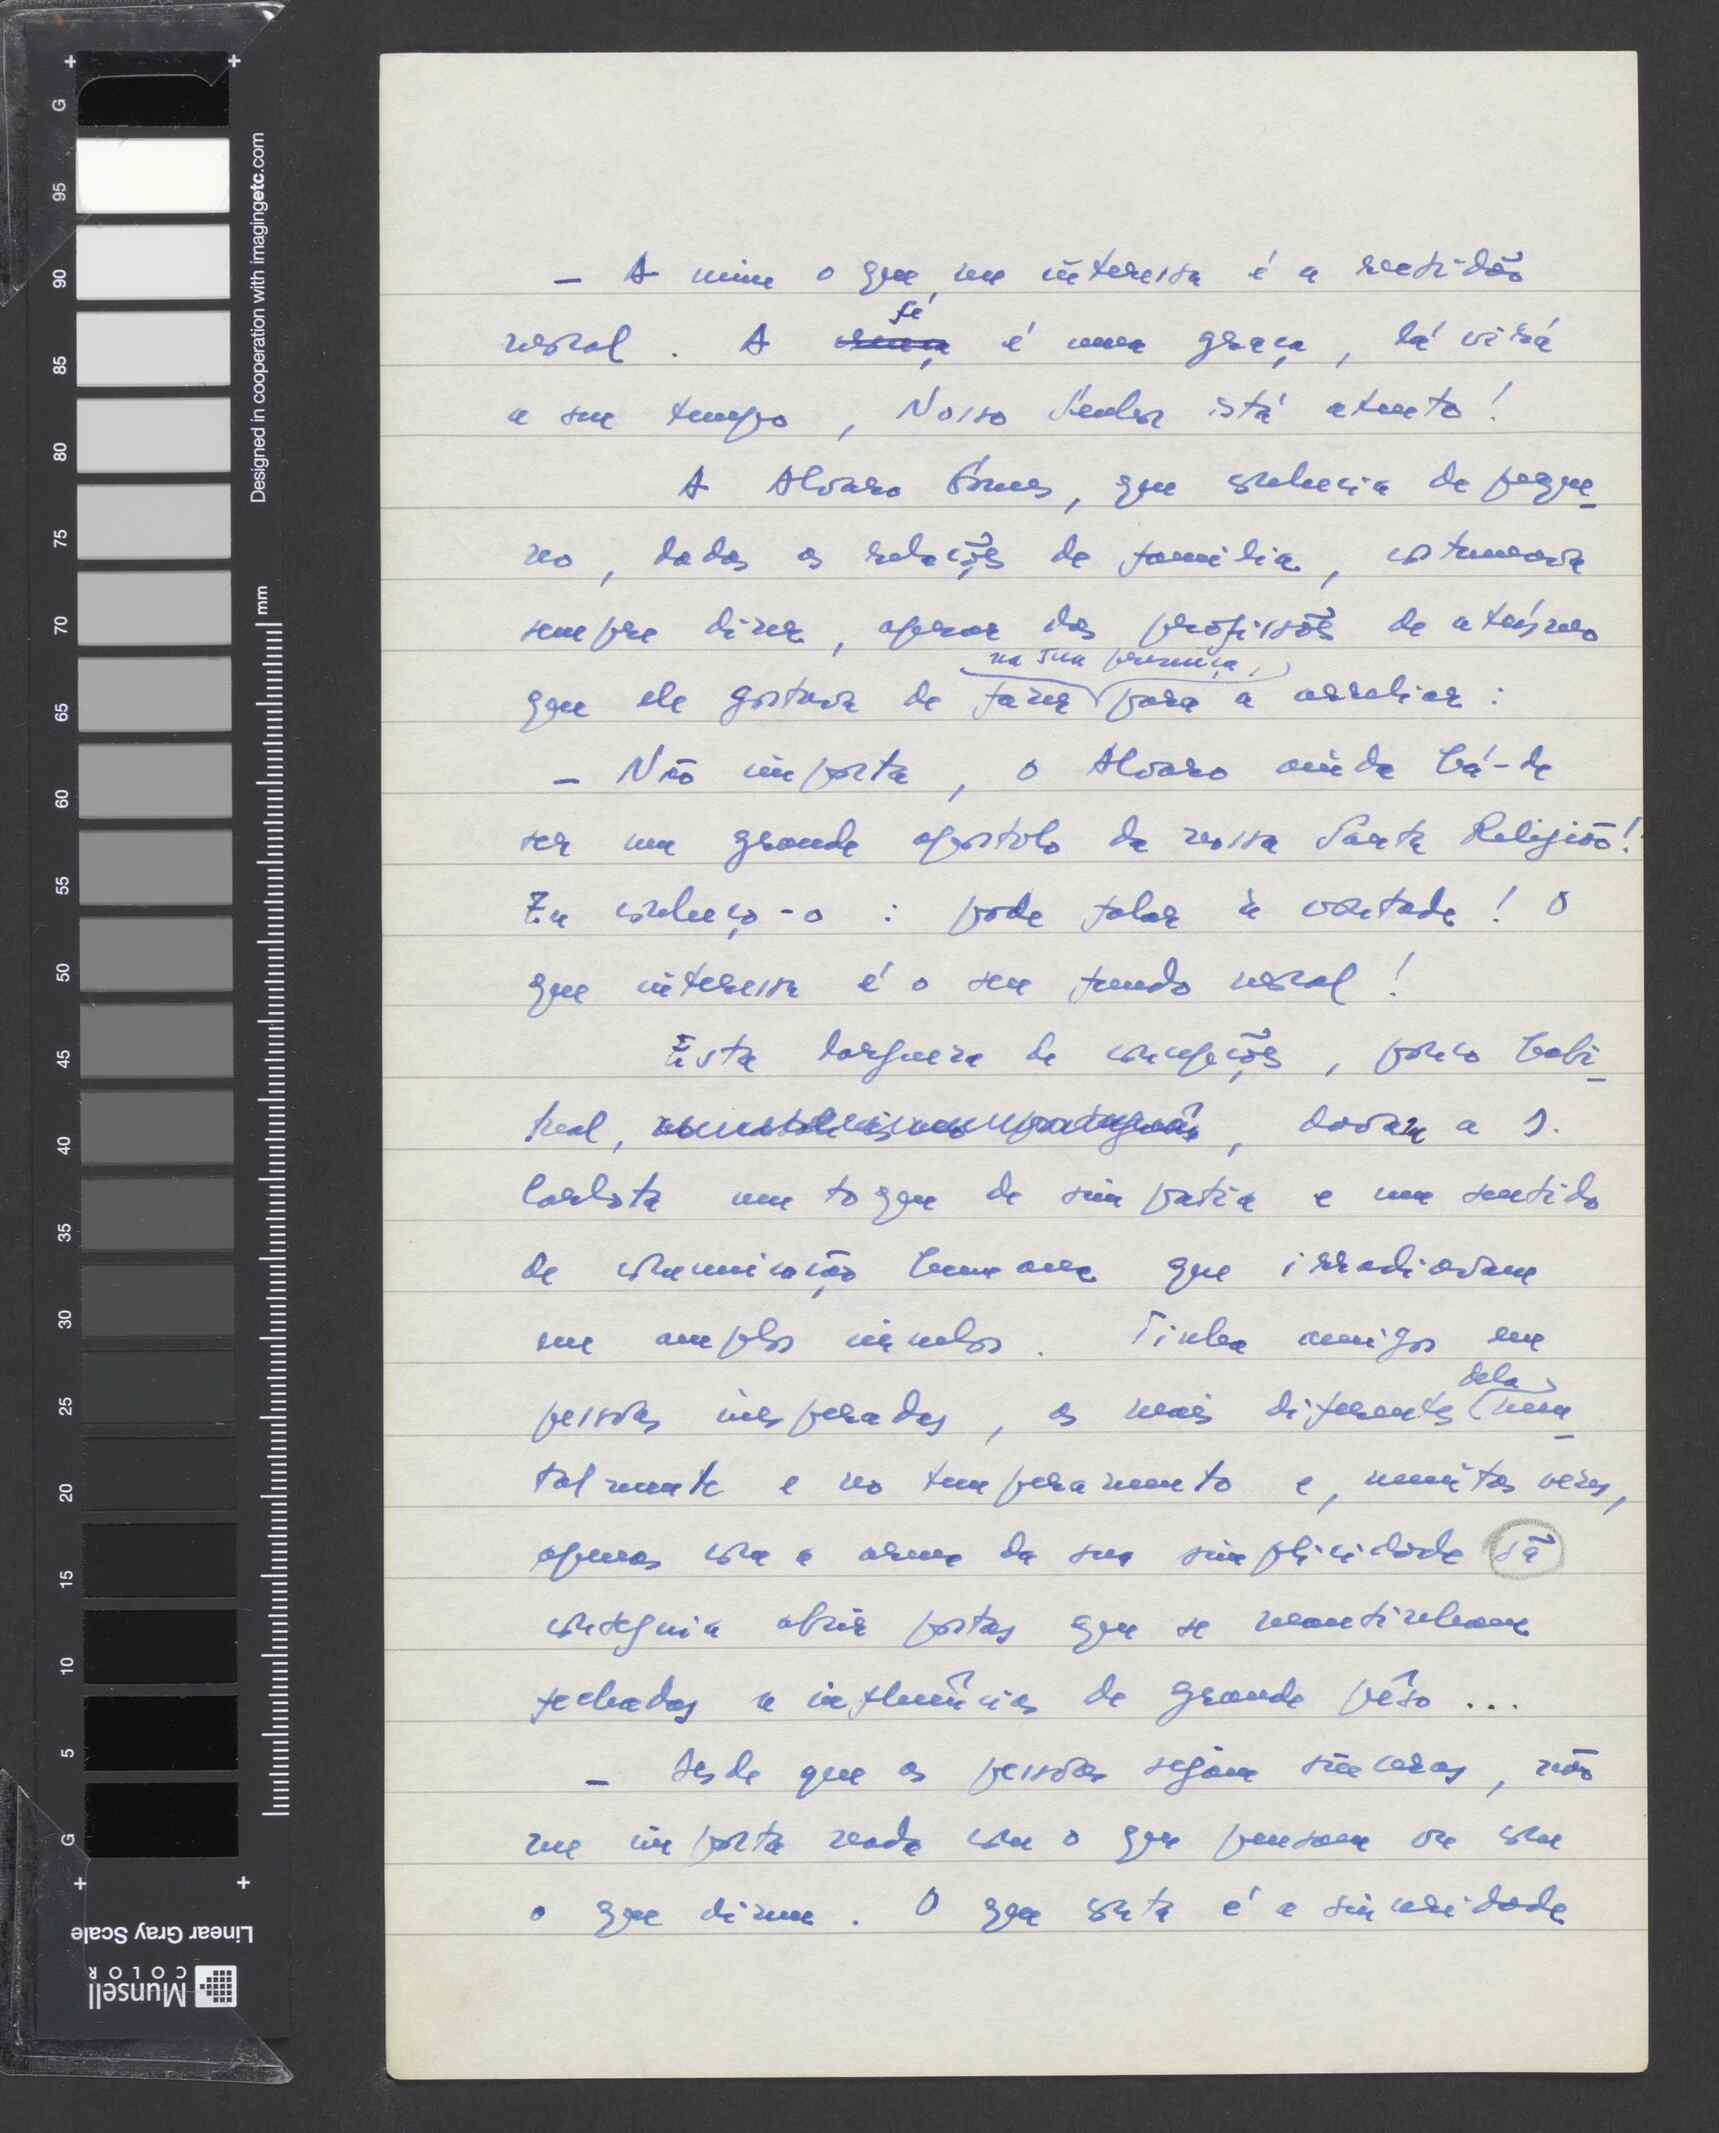 — A mim o que me interessa é a rectidão
moral. A crença fé é uma graça, lá virá
a seu tempo, Nosso Senhor está atento!
A Alvaro Gomes, que conhecia de peque-
no, dadas as relações de familia, costumava
sempre dizer, apesar das profissões de ateísmo
na sua presença,
que ele gostava de fazer para a arreliar:
— Não importa, o Alvaro ainda há-de
ser um grande apostolo da nossa Santa Religião!
Eu conheço-o: pode falar à vontade! O
que interessa é o seu fundo moral!
Esta largueza de concepções, pouco habi-
tual, davam a D.
Carlota um toque de simpatia e um sentido
de comunicação humana que irradiavam
em amplos circulos. Tinha amigos em
pessoas inesperadas, as mais diferentes dela men-
talmente e no temperamento e, muitas vezes,
apenas com a arma da sua simplicidade sã
conseguia abrir portas que se mantinham
fechadas a influências de grande pêso...
— Desde que as pessoas sejam sinceras, não
me importa nada com o que pensam ou com
o que dizem. O que conta é a sinceridade
Designed in cooperation with imagingetc.com
mm
G
95
90
85
80
75
70
65
60
55
50
45
40
35
30
25
20
15
10
5
G
Linear Gray Scale
Munsell
COLOR